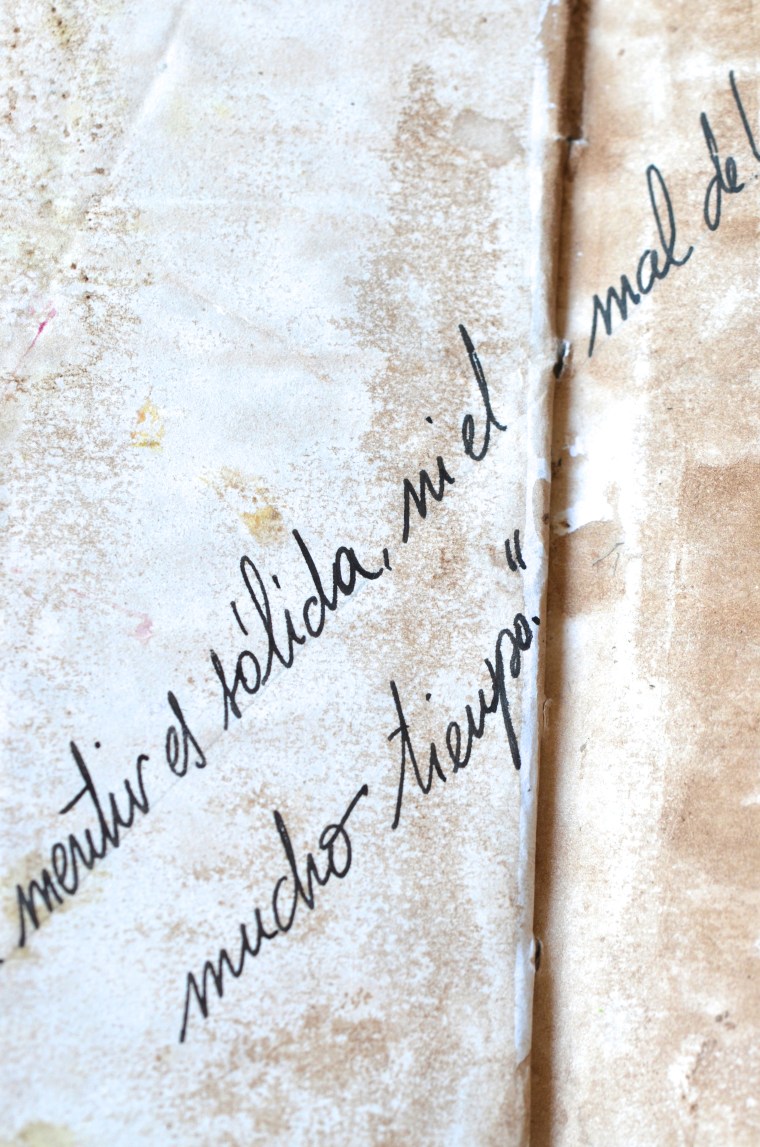 mentir es sólida, ni el
mucho tiempo."
mal de